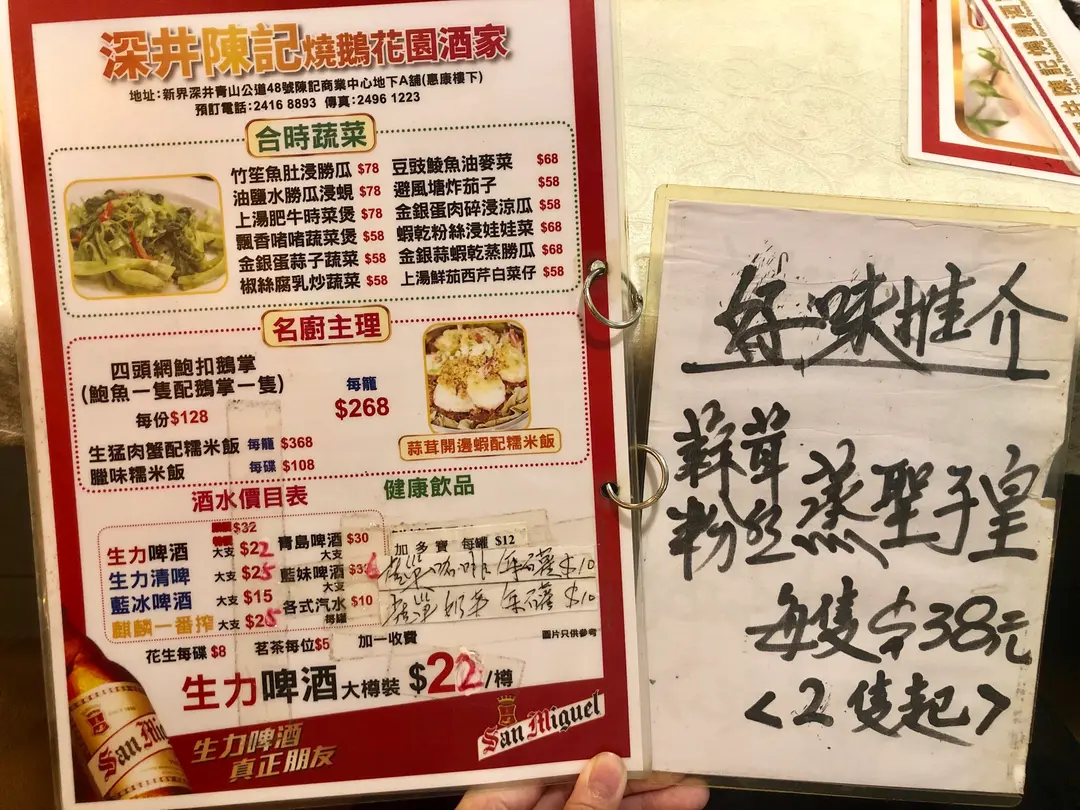 深井陳記燒鵝花園酒家
地址:新界深井青山公道48號陳記商業中心地下A舖(惠康樓下)
預訂電話:2416 8893 傳真:2496 1223
合時蔬菜
竹笙魚肚浸勝瓜 $78
油鹽水勝瓜浸蜆 $78
上湯肥牛時菜煲 $78
飄香啫啫蔬菜煲 $58
金銀蛋蒜子蔬菜 $58
椒絲腐乳炒蔬菜 $58
豆豉鯪魚油麥菜 $68
避風塘炸茄子 $58
金銀蛋肉碎浸涼瓜 $58
蝦乾粉絲浸娃娃菜 $68
金銀蒜蝦乾蒸勝瓜 $68
上湯鮮茄西芹白菜仔 $58
名廚主理
四頭網鮑扣鵝掌
(鮑魚一隻配鵝掌一隻)
每份$128
每籠
$268
蒜茸開邊蝦配糯米飯
生猛肉蟹配糯米飯 每籠 $368
臘味糯米飯 每碟 $108
酒水價目表
$32
生力啤酒 大支 $22
生力清啤 大支 $25
藍冰啤酒 大支 $15
麒麟一番搾 大支 $25
青島啤酒 $30
大支
藍妹啤酒 $36
大支
各式汽水 $10
每罐
健康飲品
加多寶 每罐 $12
花生每碟 $8 茗茶每位$5 加一收費
圖片只供參考
生力啤酒大樽裝 $22/樽
生力啤酒
真正朋友
San Miguel
San Mig
好味推介
蒜茸
粉丝
蒸聖子皇
每隻$38元
<2隻起>